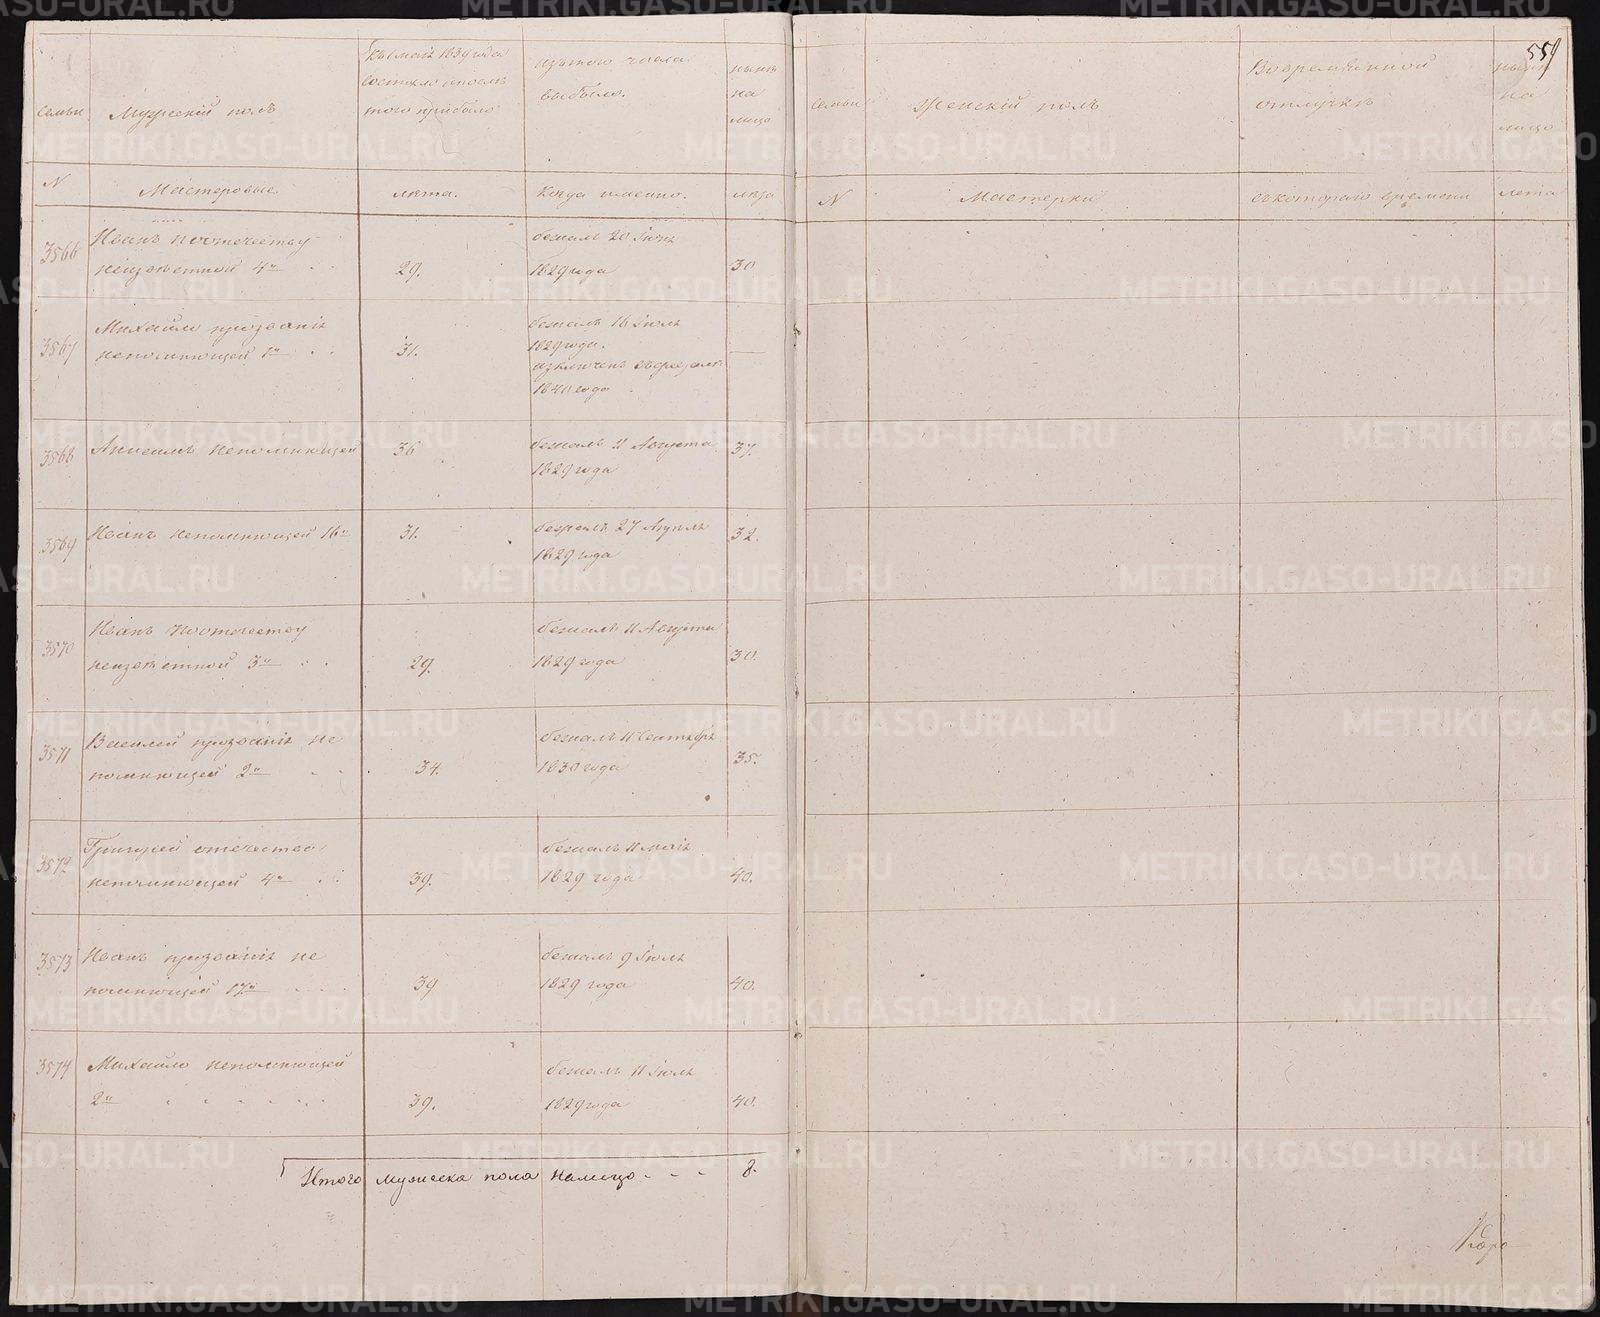 559
семьи
Мужескій полъ
Къ 1 маія 1839 года
состояло и после
того прибыло
изъ того числа
выбыло.
нынѣ
на
лицо
N
Мастеровые.
лѣта.
Когда именно.
лѣта
семьи
Женскій полъ
Во временной
отлучкѣ
нынѣ
на
лицо
N
Мастерки
съ котораго времени
лета
3566
Иванъ поотечеству
неизвѣстной 4й
29.
бежалъ 20 Іюня
1829 года
30
3567
Михайло прозванія
непомнющей 1й
31.
бежалъ 16 Іюля
1829 года.
изключенъ
1840 года
3568
Анисимъ непомнющей
36
бежалъ 11 Августа
1829 года
37.
3569
Иванъ непомнющей 16й
31.
бежалъ 27 Апреля
1829 года
32.
3570
Иванъ поотечеству
неизвѣстной 3й
29.
бежалъ 11 Августа
1829 года
30.
3571
Василей прозванія не
помнющей 2й
34.
бежалъ 11 Сентября
1830 года
35.
3572
Григорей отечества
непомнющей 4й
39.
бежалъ 11 маія
1829 года
40.
3573
Иванъ прозванія не
помнющей 17й
39
бежалъ 9 Іюля
1829 года
40.
3574
Михайло непомнющей
2й
39.
бежалъ 11 Іюля
1829 года
40.
Итого мужеска пола налицо - - - 8.
METRIKI.GASO-URAL.RU